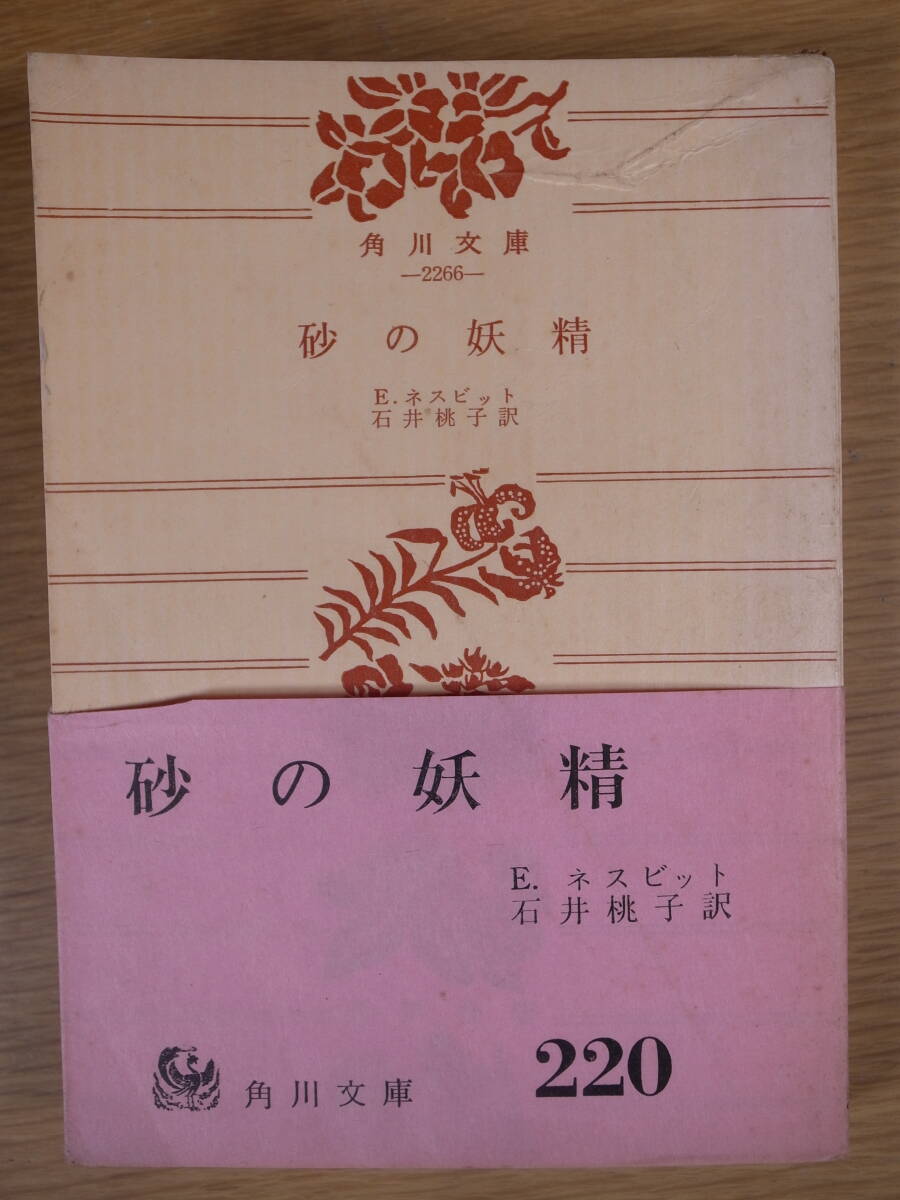 角川文庫
―2266―
砂の妖精
E.ネスビット
石井桃子訳
砂の妖精
E. ネスビット
石井桃子訳
角川文庫
220